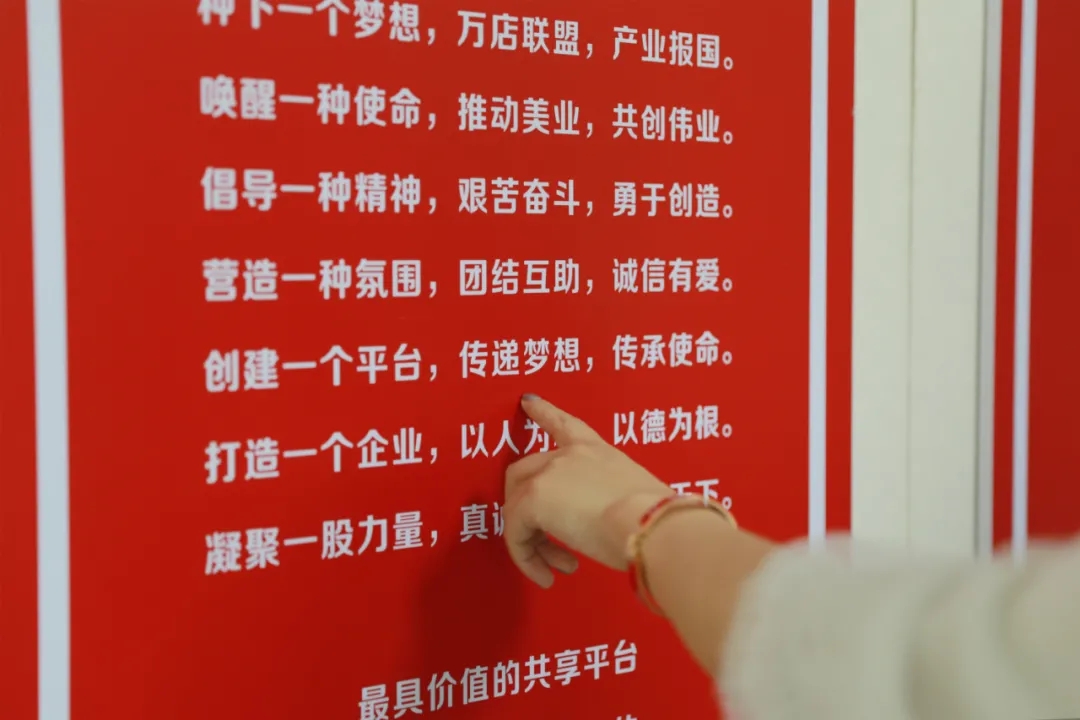 种下一个梦想，万店联盟，产业报国。
唤醒一种使命，推动美业，共创伟业。
倡导一种精神，艰苦奋斗，勇于创造。
营造一种氛围，团结互助，诚信有爱。
创建一个平台，传递梦想，传承使命。
打造一个企业，以人为 以德为根。
凝聚一股力量，真诚 天下。
最具价值的共享平台